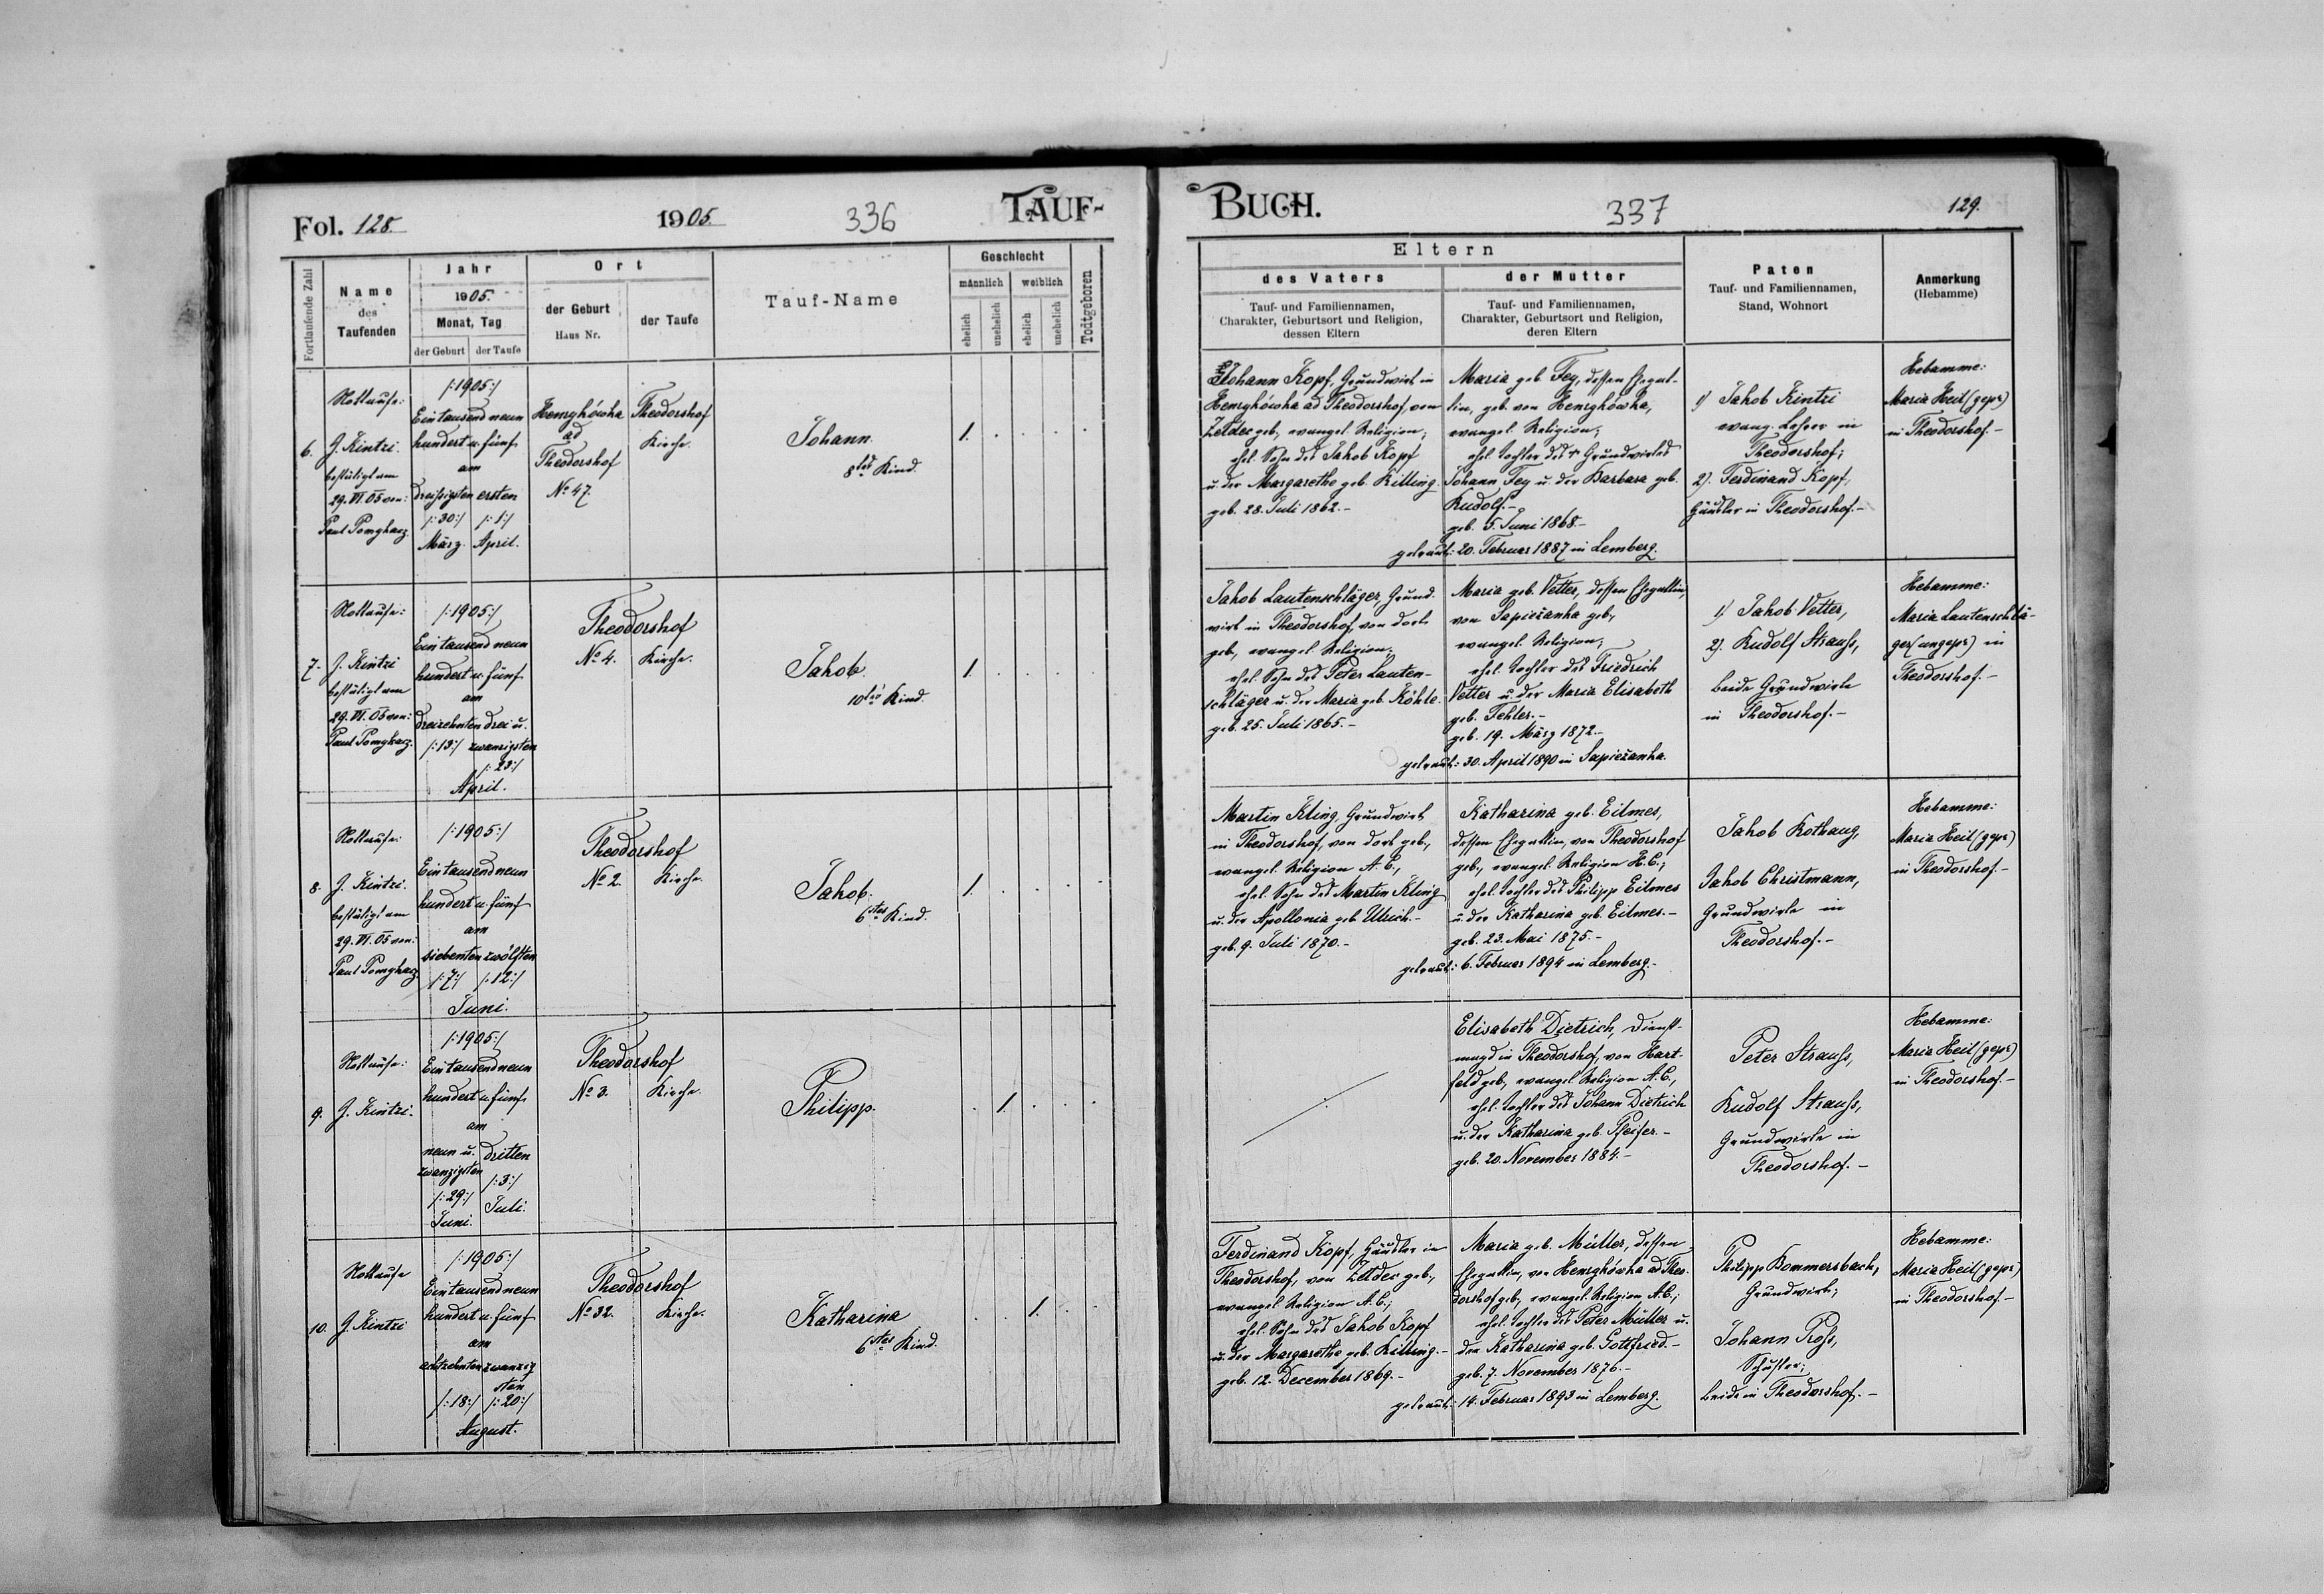 Fol. 128.
1905.
336
TAUF-
Fortlaufende Zahl
Name
des
Taufenden
Jahr
1905.
Monat, Tag
der Geburt
der Taufe
Ort
der Geburt
Haus Nr.
der Taufe
Tauf-Name
Geschlecht
männlich
weiblich
ehelich
unehelich
ehelich
unehelich
Todtgeboren
6.
Nottaufe:
J. Kintzi.
bestätigt am
29. VI. 05 von:
Paul
/:1905:/
Ein tausend neun
hundert u. fünf
am
dreißigsten ersten
/:30:/ /:1:/
März. April.
ad
Theodorshof
No 47.
Theodorshof
Kirche.
Johann.
8tes Kind.
1.
7.
Nottaufe:
J. Kintzi
bestätigt am
29. VI. 05 von:
Paul
/:1905:/
Ein tausend neun
hundert u. fünf
am
dreizehnten drei u.
/:13:/ zwanzigsten
/:23:/
April.
Theodorshof
No 4. Kirche.
Jakob.
10tes Kind.
1.
8.
Nottaufe:
J. Kintzi.
bestätigt am
29. VI. 05 von:
Paul
/:1905:/
Ein tausend neun
hundert u. fünf
am
siebenten zwölften
/:7:/ /:12:/
Juni.
Theodorshof
No 2. Kirche.
Jakob.
6tes Kind.
1.
9.
Nottaufe:
J. Kintzi.
/:1905:/
Ein tausend neun
hundert u. fünf
am
neun u. dritten
zwanzigsten
/:3:/
/:29:/ Juli.
Juni.
Theodorshof
No 3. Kirche.
Philipp.
1.
10.
Nottaufe
J. Kintzi
/:1905:/
Ein tausend neun
hundert u. fünf
am
achtzehnten zwanzig
sten
/:18:/ /:20:/
August.
Theodorshof
No 32. Kirche.
Katharina
6tes Kind.
1.
BUCH.
337
129.
Eltern
des Vaters
Tauf- und Familiennamen,
Charakter, Geburtsort und Religion,
dessen Eltern
der Mutter
Tauf- und Familiennamen,
Charakter, Geburtsort und Religion,
deren Eltern
Paten
Tauf- und Familiennamen,
Stand, Wohnort
Anmerkung
(Hebamme)
Johann Kopf, Grundwirt in
ad Theodorshof, von
geb., evangel. Religion;
ehel. Sohn des Jakob Kopf
u. der Margarethe geb. Killing.
geb. 28. Juli 1862.-
Maria geb. Fey, dessen Ehegat-
tin, geb. von
evangel. Religion;
ehel. Tochter des Grundwirtes
Johann Fey u. der Barbara geb.
Rudolf.-
geb. 5. Juni 1868.-
getraut: 20. Februar 1887 in Lemberg.
1) Jakob Kintzi
evang. Lehrer in
Theodorshof;
2). Ferdinand Kopf,
Häusler in Theodorshof.-
Hebamme:
Maria Heil (gepr.)
in Theodorshof.-
Jakob Lautenschläger, Grund-
wirt in Theodorshof, von dort
geb., evangel. Religion;
ehel. Sohn des Peter Lauten-
schläger u. der Maria geb. Köhle.
geb. 25. Juli 1865.-
Maria geb. Vetter, dessen Ehegattin,
von Sapieżanka geb.,
evangel. Religion;
ehel. Tochter des Friedrich
Vetter u. der Maria Elisabeth
geb. Fehler.-
geb. 19. März 1872.-
getraut: 30. April 1890 in Sapieżanka.
1) Jakob Vetter,
2). Rudolf Strauß,
beide Grundwirte
in Theodorshof.-
Hebamme:
Maria Lautenschlä-
ger (ungepr.) in
Theodorshof.-
Martin Kling, Grundwirt
in Theodorshof, von dort geb.,
evangel. Religion A. C.,
ehel. Sohn des Martin Kling
u. der Apollonia geb. Ulrich.-
geb. 9. Juli 1870.-
Katharina geb. Eilmes,
dessen Ehegattin, von Theodorshof
geb., evangel. Religion H. C.;
ehel. Tochter des Philipp Eilmes
u. der Katharina geb. Eilmes.-
geb. 23. Mai 1875.-
getraut: 6. Februar 1894 in Lemberg.-
Jakob Rothaug,
Jakob Christmann,
Grundwirte in
Theodorshof.-
Hebamme:
Maria Heil (gepr.)
in Theodorshof.-
Elisabeth Dietrich, Dienst-
magd in Theodorshof, von Hart-
feld geb., evangel. Religion A. C.,
ehel. Tochter des Johann Dietrich
u. der Katharina geb. Pfeifer.-
geb. 20. November 1884.-
Peter Strauß,
Rudolf Strauß,
Grundwirte in
Theodorshof.-
Hebamme:
Maria Heil (gepr.)
in Theodorshof.-
Ferdinand Kopf, Häusler in
Theodorshof, von geb.,
evangel. Religion A. C.,
ehel. Sohn des Jakob Kopf
u. der Margaretha geb. Killing.-
geb. 12. December 1869.-
Maria geb. Müller, dessen
Ehegattin, von ad Theo-
dorshof geb., evangel. Religion A. C.;
ehel. Tochter des Peter Müller u.
der Katharina geb. Gottfried.-
geb. 7. November 1876.-
getraut: 14. Februar 1893 in Lemberg.
Philipp Bommersbach,
Grundwirt;
Johann Proß,
Schuster;
beide in Theodorshof.-
Hebamme:
Maria Heil (gepr.)
in Theodorshof.-